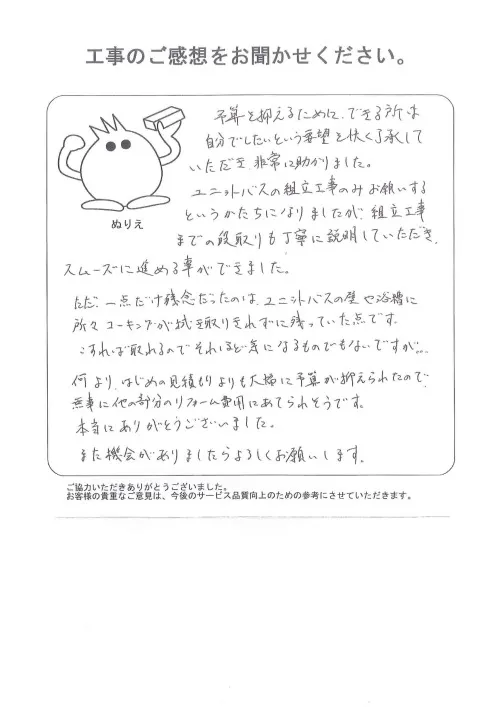 工事のご感想をお聞かせください。
予算を抑えるために、できる所は
自分でしたいという要望を快く了承して
いただき、非常に助かりました。
ユニットバスの組立工事のみお願いする
というかたちになりましたが、組立工事
ぬりえ
までの段取りも丁寧に説明していただき、
スムーズに進める事ができました。
ただ、一点だけ残念だったのは、ユニットバスの壁や浴槽に
所々コーキングが拭き取りきれずに残っていた点です。
こすれば取れるのでそれほど気になるものでもないですが。。。
何より、はじめの見積もりよりも大幅に予算が抑えられたので
無事に他の部分のリフォーム費用にあてられそうです。
本当にありがとうございました。
また機会がありましたらよろしくお願いします。
ご協力いただきありがとうございました。
お客様の貴重なご意見は、今後のサービス品質向上のための参考にさせていただきます。